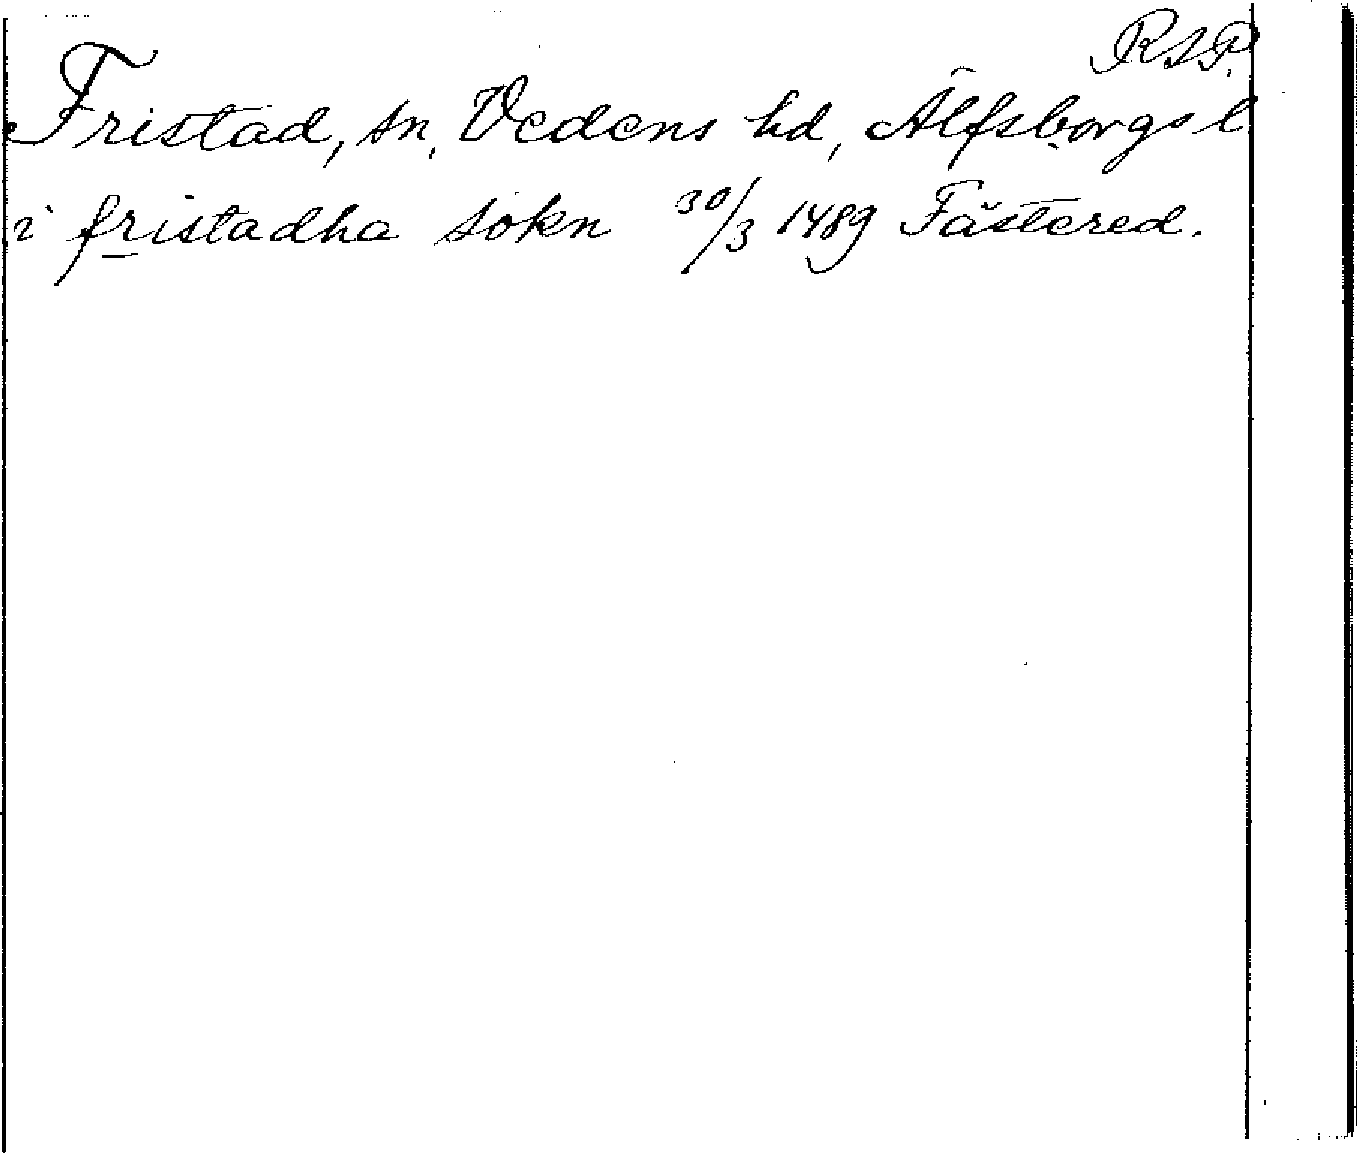 RAP.
Fristad, sn, Vedens hd, Älfsborgs l
i fristadha sokn 30/3 1489 Fästered.